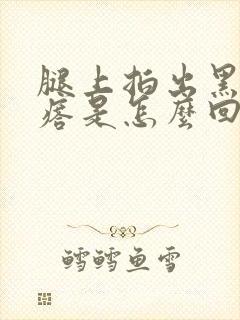 腿上拍出黑
是怎麼回
鳕鳕鱼雪